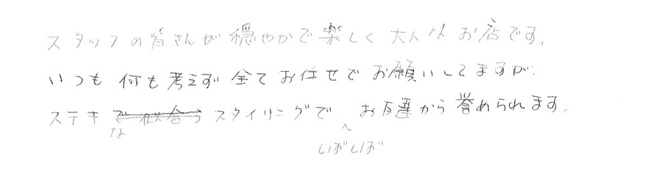 スタッフの皆さんが穏やかで楽しく大人なお店です。
いつも何も考えず全てお任せでお願いしてますが、
ステキなスタイリングでしばしばお友達から誉められます。